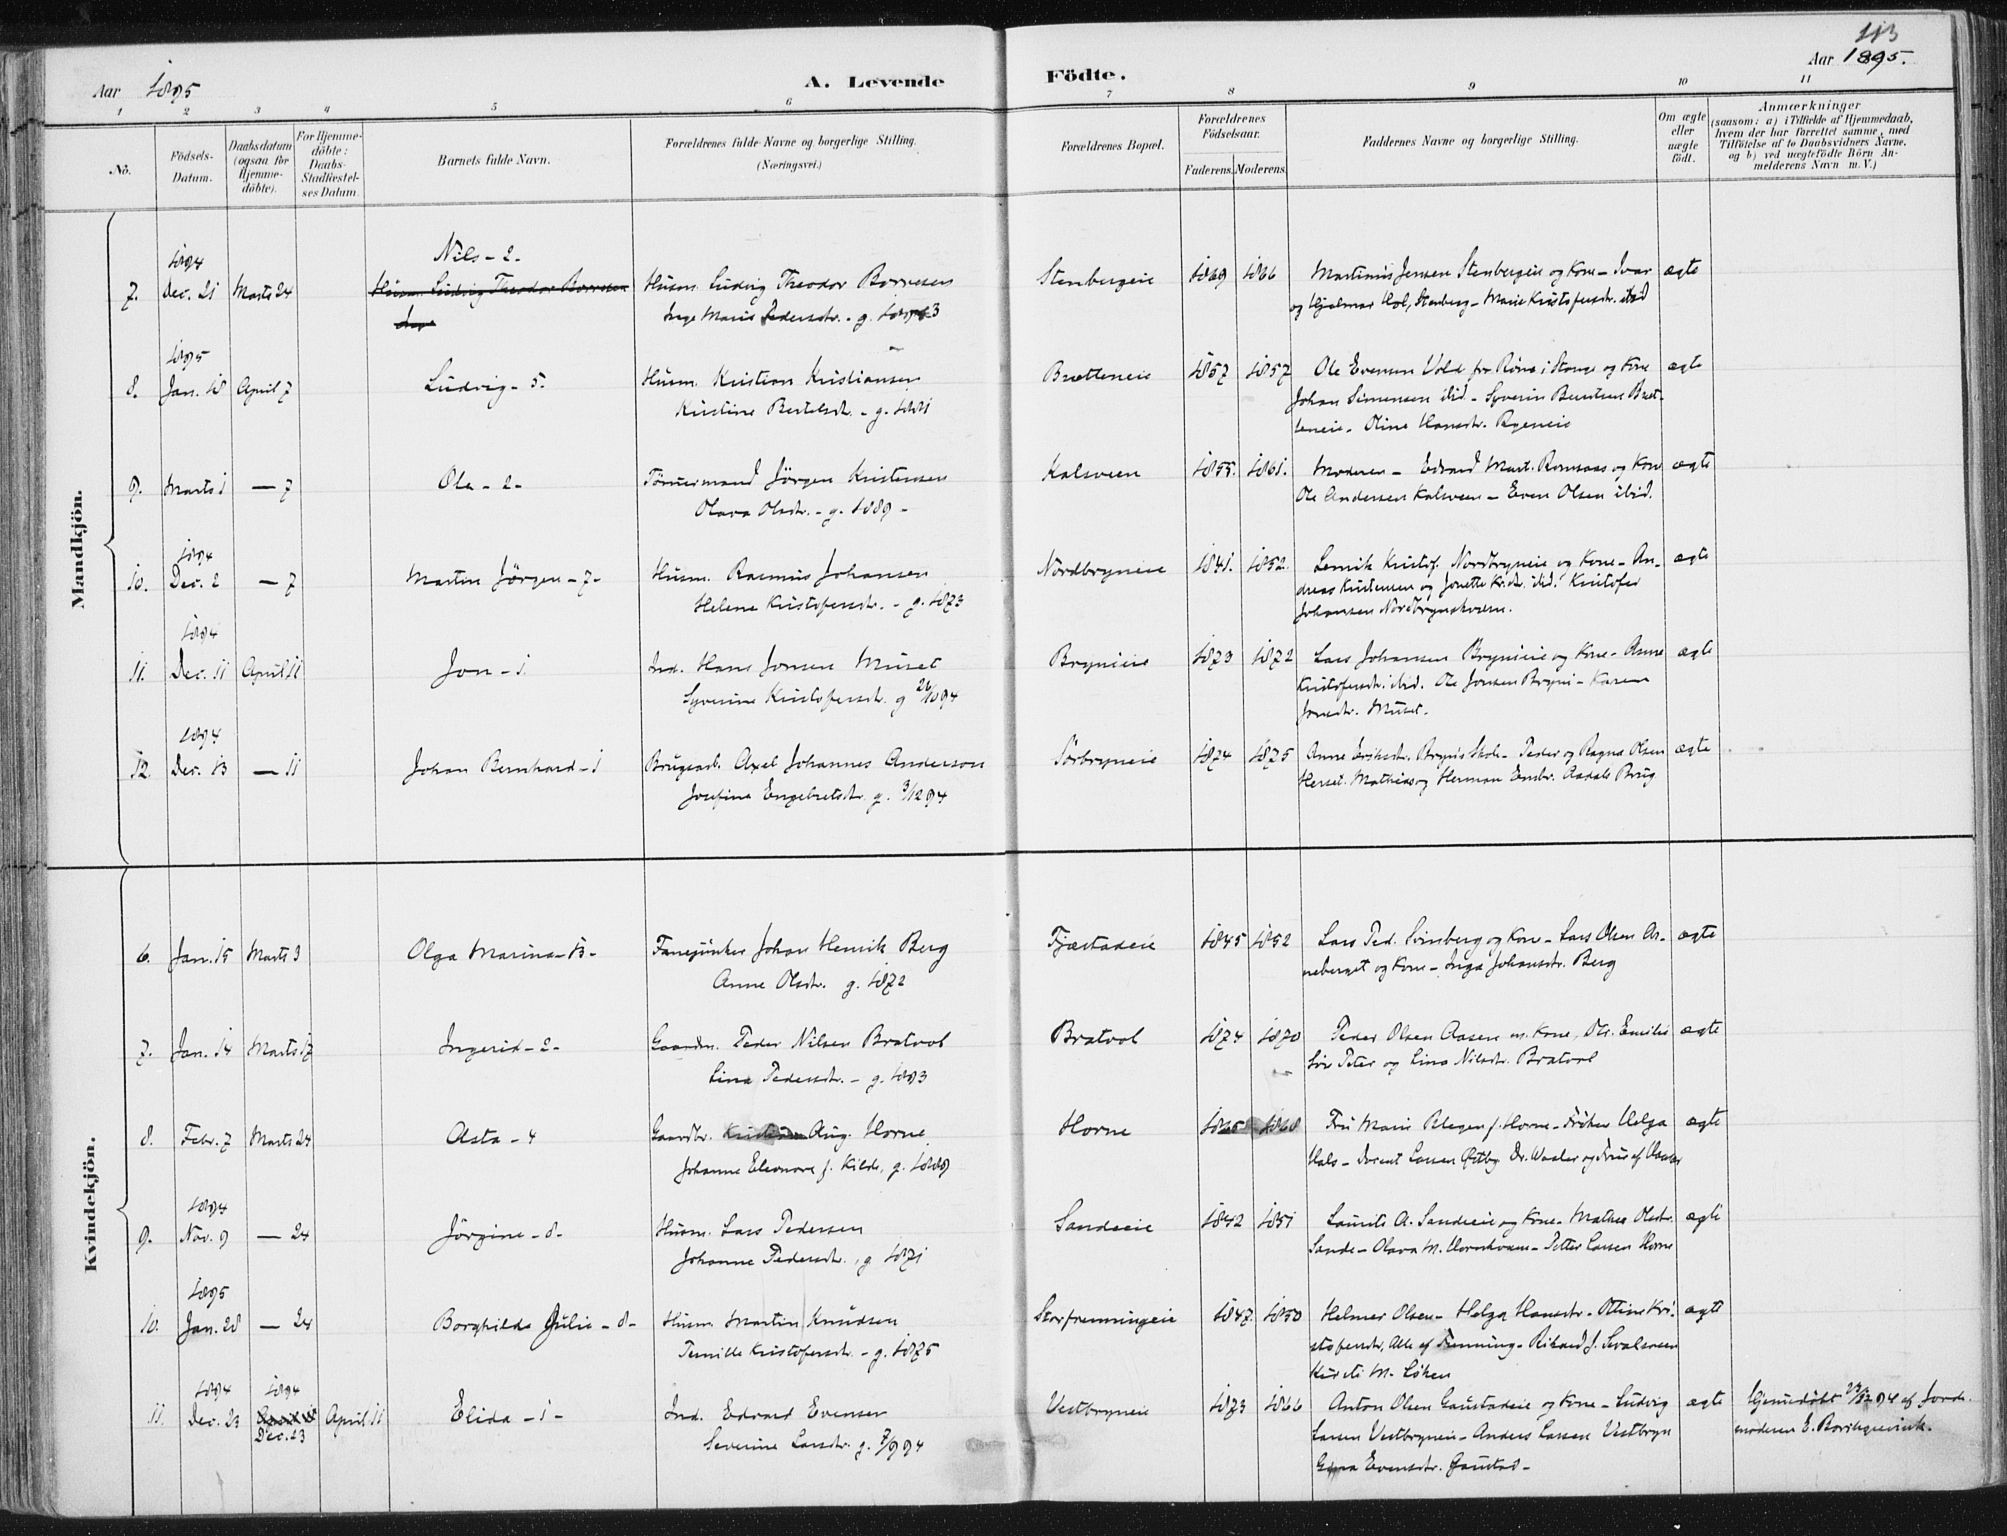 113
Aar 1895
A. Levende
Födte.
Aar 1895.
1 2 3 4 5 6 7 8 9 10 11
No.
Födsels-
Datum.
Daabsdatum
(ogsaa for
Hjemme-
döbte).
For Hjemme-
döbte:
Daabs-
Stadfæstel-
ses Datum
Barnets fulde Navn.
Forældrenes fulde Navne og borgerlige Stilling.
(Næringsvei.)
Forældrenes Bopæl.
Forældrenes
Födselsaar.
Faderens. Moderens.
Faddernes Navne og borgerlige Stilling.
Om ægte
eller
uægte
födt.
Anmærkninger
(saasom: a) i Tilfælde af Hjemmedaab,
hvem der har forrettet samme, med
Tilföielse af to Daabsvidners Navne,
og b) ved uægtefödte Börn An-
melderens Navn m. V.)
Mandkjön.
1894
7. Dec. 21 Marts 24
Nils - 2 -
Husm. Ludvig Theodor Borresen
Inge
Husm. Ludvig Theodor Borresen
Inge Marie Pedersdtr. - g. 1893
Stenbergeie 1869 1866
Martinius Jensen Stenbergeie og Kone - Ivar
og Hjalmar Hol, Stenberg - Marie Kristofersdtr. ibid
ægte
1895
8. Jan. 18 April 7
Ludvig - 5 -
Husm. Kristian Kristiansen
Kristine Bertelsdt. - g. 1881
Bratteneie 1857 1857
Ole Evensen Vold fra Röne i Stange og Kone
Johan Simensen ibid - Syverin Berntsen Brat-
teneie - Oline Hansdtr. Ryeneie
ægte
9. Marts 1 — 7
Ole - 2 -
Tömmermand Jörgen Kristensen
Olava Olsdtr. - g. 1889 -
Kalsveen 1855. 1861.
Moderen - Edvard Mart. Romsaas og Kone
Ole Andersen Kalsveen - Even Olsen ibid.
ægte
1894
10. Dec. 2 — 7
Martin Jörgen - 7 -
Husm. Rasmus Johansen
Helene Kristofersdtr. - g. 1873
Nordbryneie 1841. 1852.
Lenrik Kristof. Nordbryneie og Kone - An-
dreas Kristensen og Jonette Kr.dtr. ibid. Kristofer
Johansen Nordbrynskvern.
ægte
1894
11. Dec. 11 April 11
Jon - 1
Ind. Hans Jonsen Muset
Syverine Kristofersdtr. g 26/10 94
Brynieie 1873 1872
Lars Johansen Brynieie og Kone - Anne
Kristofersdtr. ibid. Ole Jonsen Bryni - Karen
Jonsdtr. Muset.
ægte
1894
12. Dec. 13 — 11
Johan Bernhard - 1
Brugsarb. Axel Johannes Anderson
Josefine Engebretsdtr. g. 3/12 94
Sörbryneie 1874 1875
Anne Eriksdtr. Bryni Skole - Peder og Ragna Olsen
Herset. Mathias og Herman Embr. Aadals Brug
ægte
Kvindekjön.
6. Jan. 15 Marts 3
Olga Marina - 13 -
Fanejunker Johan Henrik Berg
Anne Olsdtr. g. 1872
Fjæstadeie 1845 1852
Lars Ped. Svinberg og Kone - Lars Olsen As-
neberget og Kone - Inga Johansdtr. Berg
ægte
7. Jan. 14 Marts 17
Ingerid - 2 -
Gaardm. Peder Nilsen Bratvol
Lina Pedersdtr. - g. 1893
Bratvol 1874 1870
Peder Olsen Aasen m. Kone, Dtr. Emilie
Sön Peter og Lina Nilsdtr. Bratvol
ægte
8. Febr. 7 Marts 24
Asta - 4
Gaardbr. Kristian Aug. Horne
Johanne Eleonore f. Kilde, g. 1889
Horne 1865 1868
Fru Marie Blegen f. Horne - Fröken Helga
Hals - Docent Larsen Östby Dr. Waaler og Frue af Hamar
ægte
1894
9. Nov. 9 — 24
Jörgine - 8 -
Husm. Lars Pedersen
Johanne Pedersdtr., g 1871
Sandeeie 1842 1851
Laurits A. Sandeeie og Kone - Mathea Olsdtr.
Sande - Olava M. Hornskvern - Petter Larsen Horne
ægte
1895
10. Jan. 28 — 24
Borghilda Julie - 8 -
Husm. Martin Knudsen
Pernille Kristofersdtr. - g. 1875
Storfremningeie 1847. 1850
Helmer Olsen - Helga Hansdtr - Oline Kri-
stofersdtr, Alle af Fremning - Rikard J. Svalsveen
Kirsti M. Löken
ægte
1894 1894
11. Dec. 23 Dec. 23 April 11
Elida - 1 -
Ind. Edvard Evensen
Severine Larsdtr. g. 7/9 94
Vestbryneie 1873 1866
Anton Olsen Gaustadeie og Kone - Ludvig
Larsen Vestbryneie - Anders Larsen Vestbryn
Evensdtr. Gaustad -
ægte
Hjemmedöbt 23/12 94 af Jorde-
moderen E. Borchgrevink.